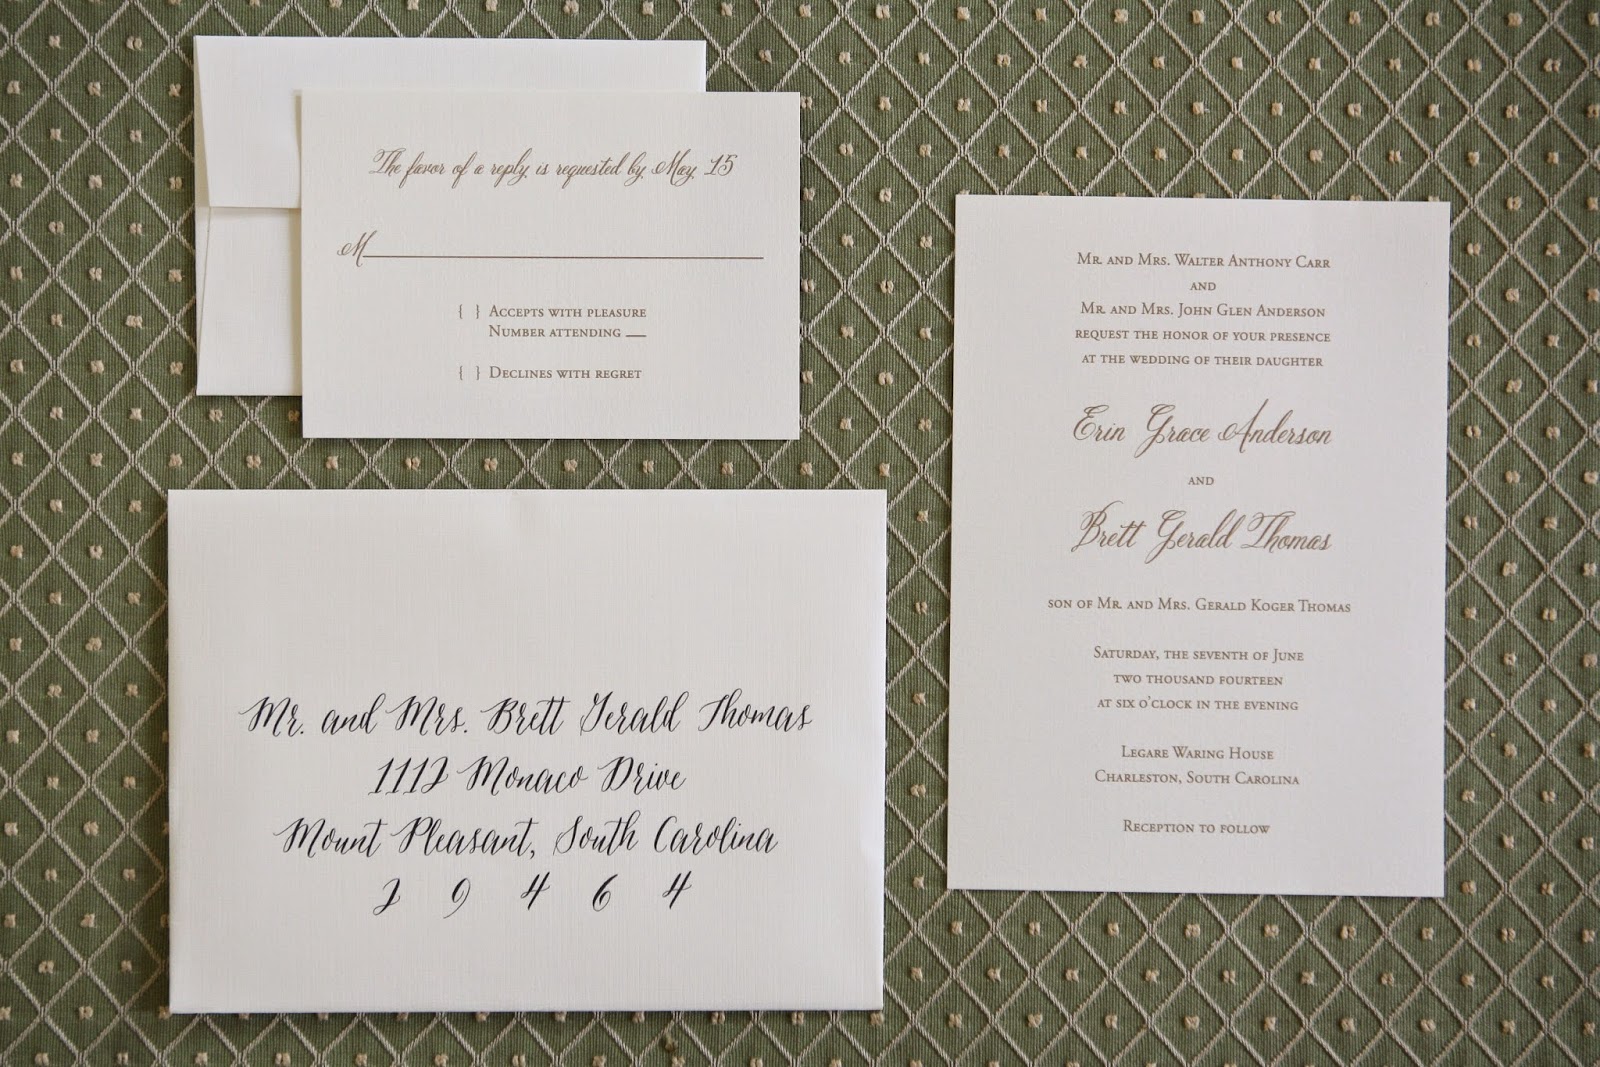 The favor of a reply is requested by May 15
M
{ } Accepts with pleasure
Number attending
{ } Declines with regret
Mr. and Mrs. Brett Gerald Thomas
1112 Monaco Drive
Mount Pleasant, South Carolina
2 9 4 6 4
Mr. and Mrs. Walter Anthony Carr
and
Mr. and Mrs. John Glen Anderson
request the honor of your presence
at the wedding of their daughter
Erin Grace Anderson
and
Brett Gerald Thomas
son of Mr. and Mrs. Gerald Koger Thomas
Saturday, the seventh of June
two thousand fourteen
at six o'clock in the evening
Legare Waring House
Charleston, South Carolina
Reception to follow